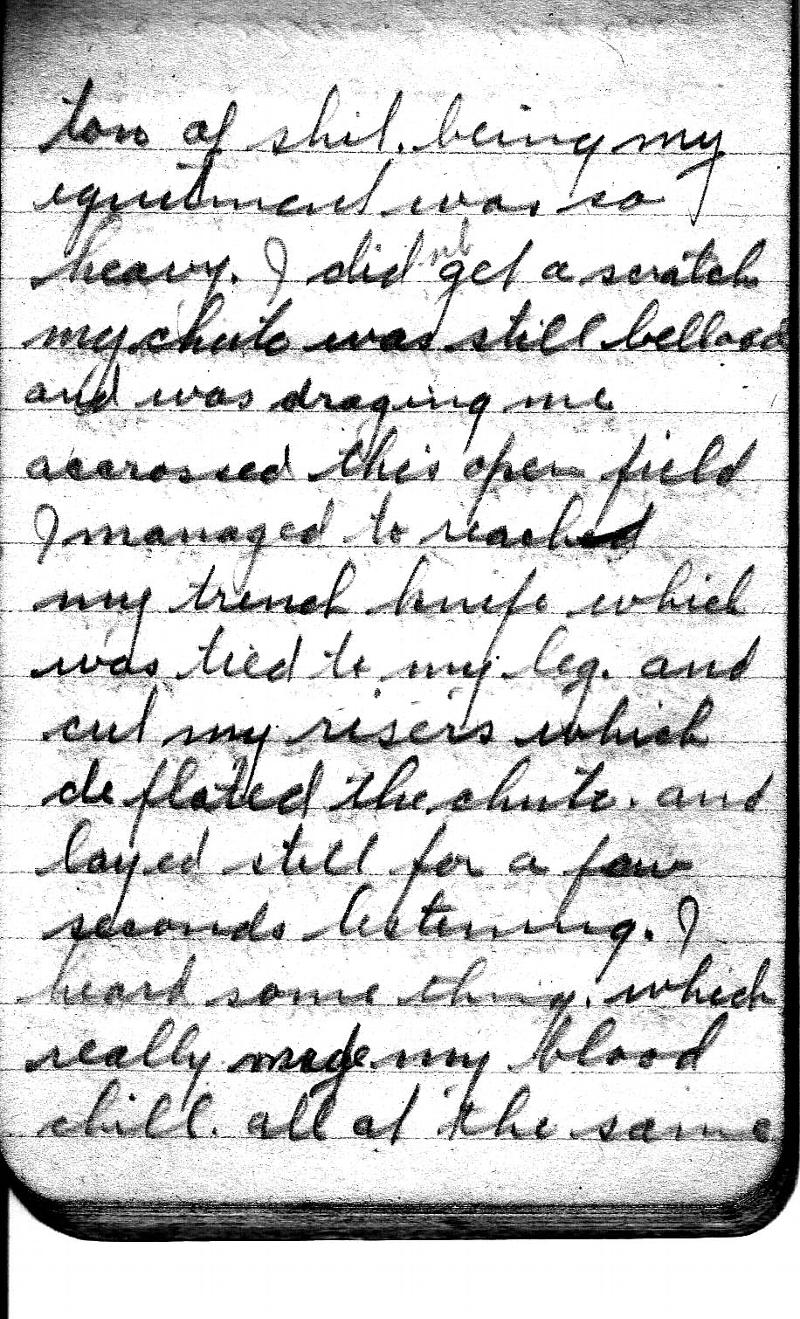 ton of shit. being my
equitment was so
heavy. I did not get a scratch
my chute was still bellood
and was draging me
accrossed this open field
I managed to reached
my trench knife which
was tied to my leg. and
cut my risers which
deflated the chute. and
layed still for a few
seconds listening. I
heard some thing. which
really made my blood
chill. all at the same